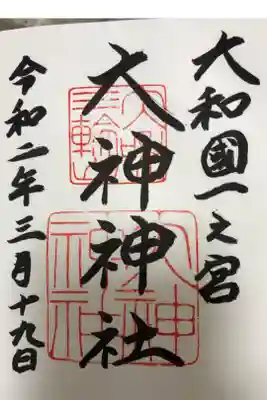 大和國一之宮
三輪山
大神神社
大神神社
令和二年三月十九日